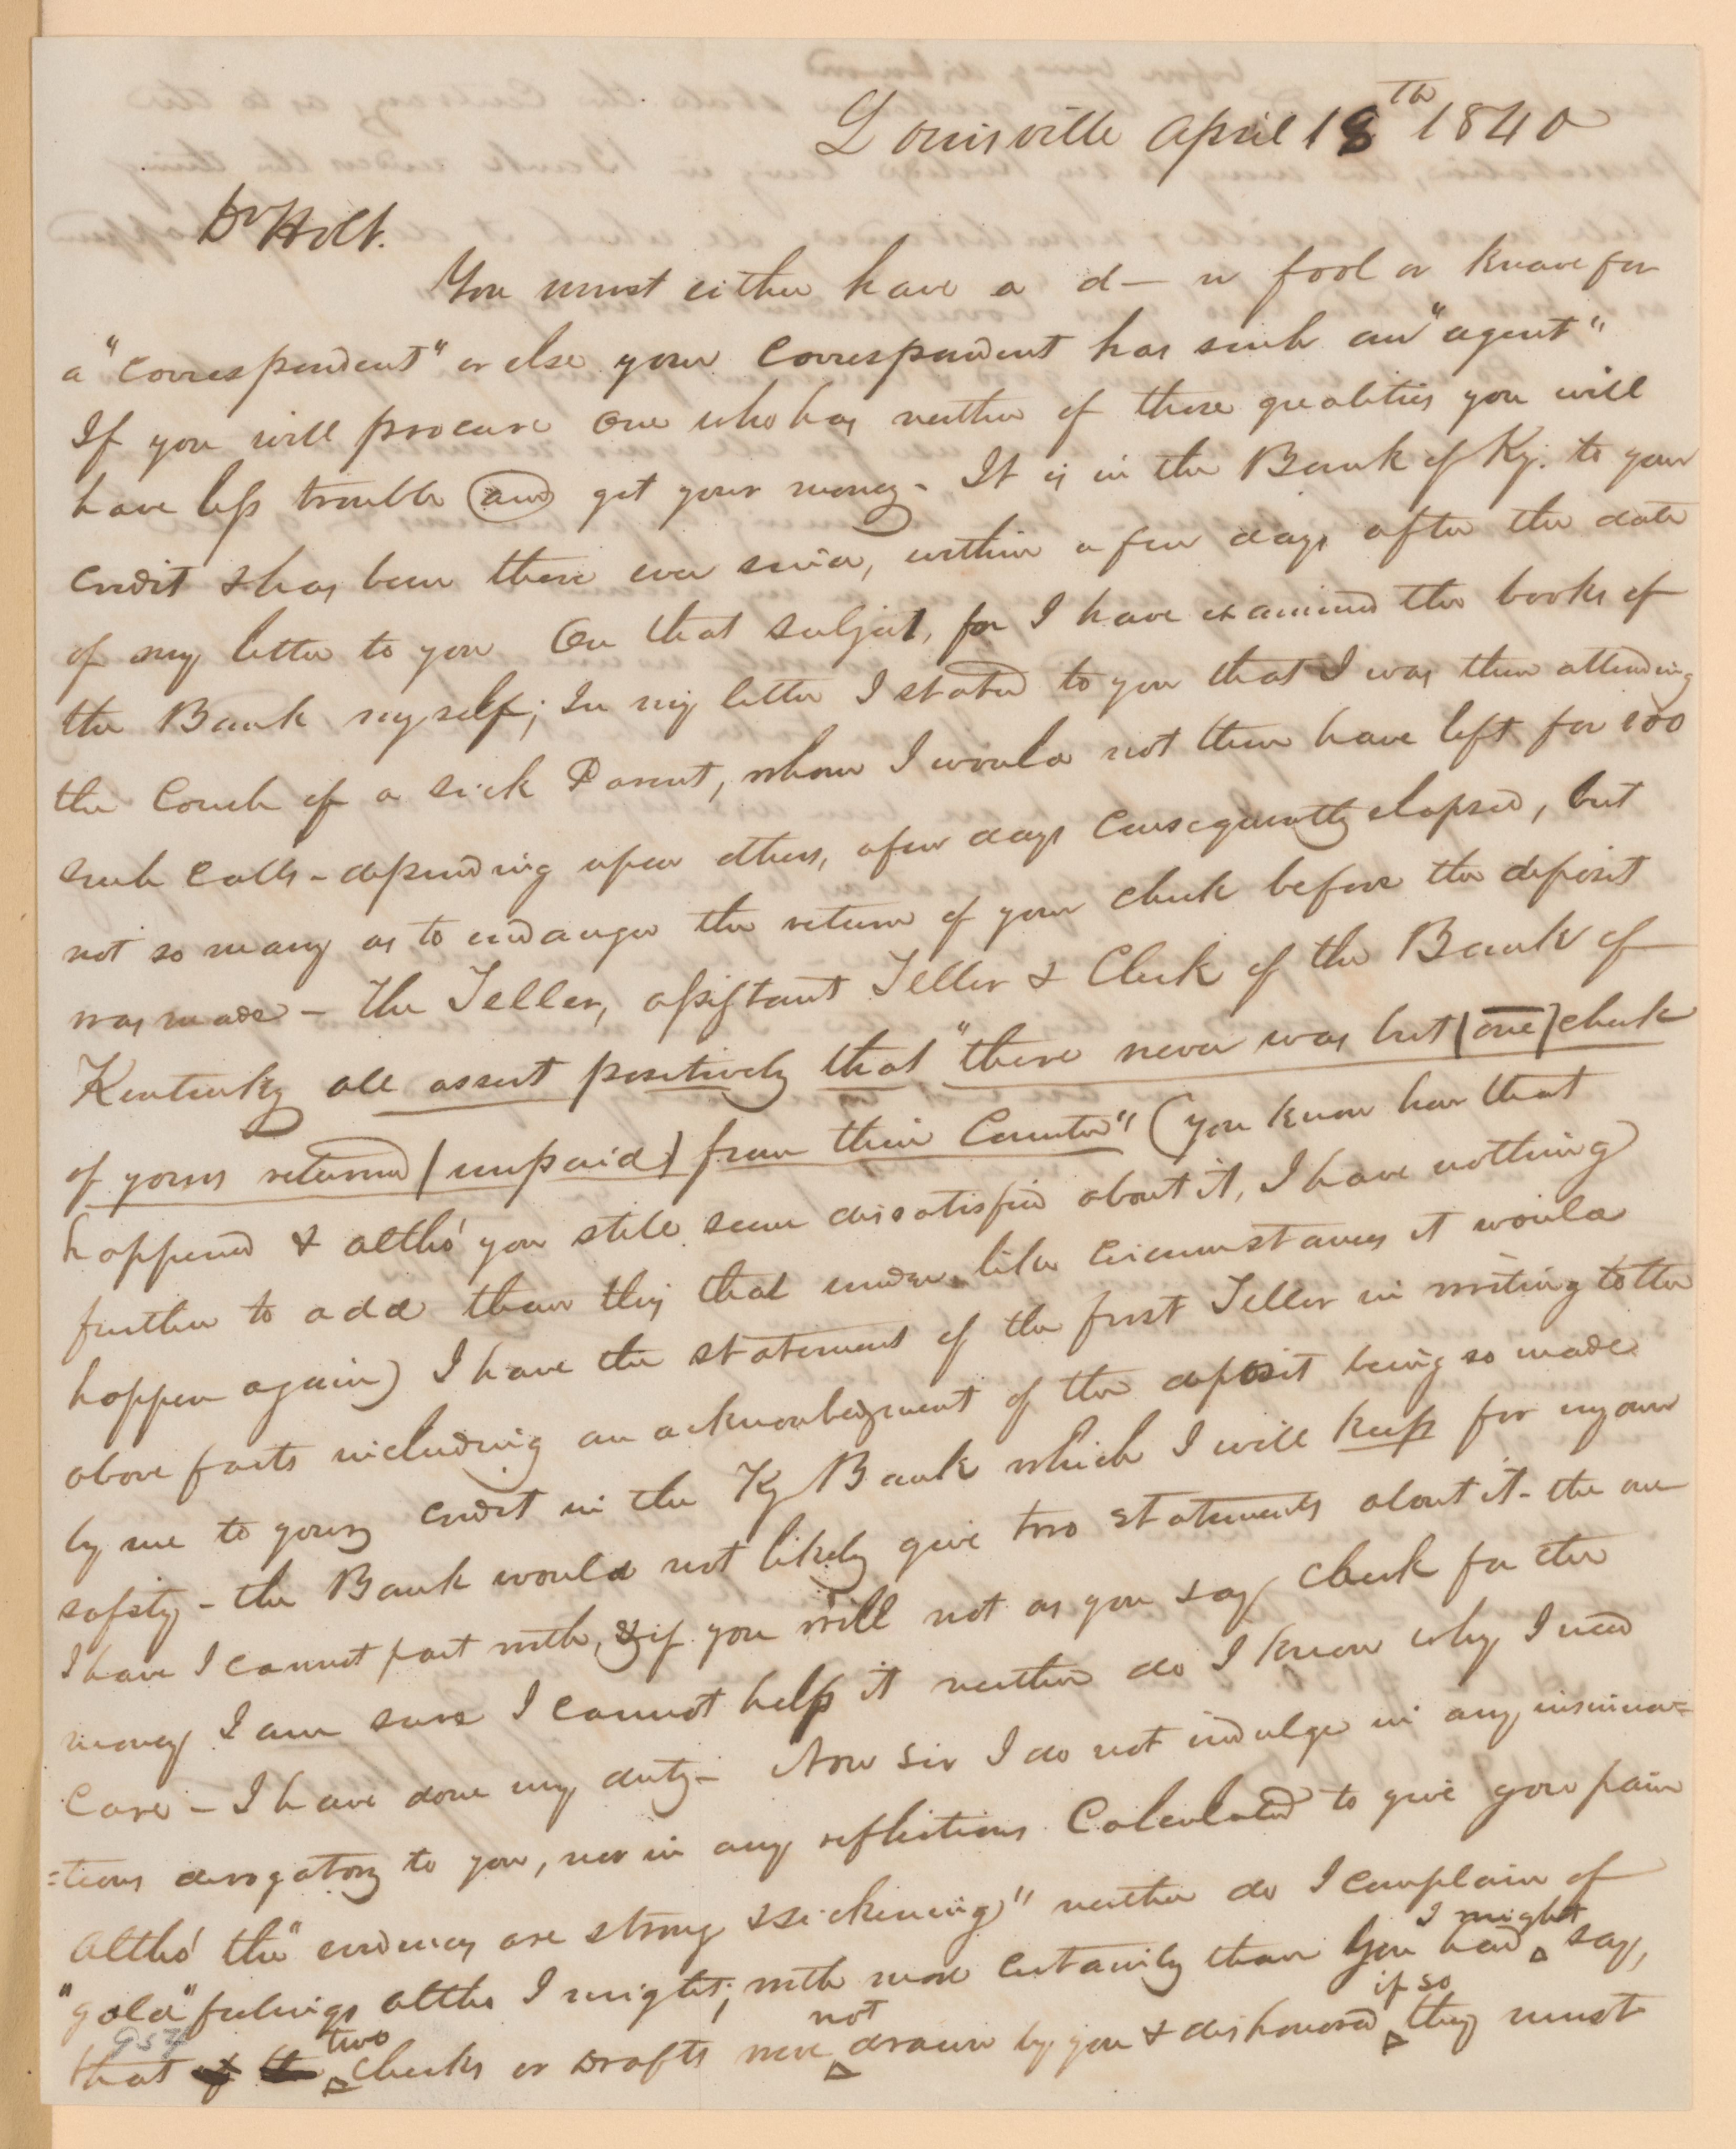 Louisville April 18th 1840
Dr Holt.
You must either have a d—n fool or knave for
a "correspondent" or else your correspondent has such an "agent"
If you will procure one who has neither of these qualities you will
have less trouble and get your money. It is in the Bank of Ky. to your
credit & has been there ever since, within a few days after the date
of my letter to you on that subject, for I have examined the books of
the Bank myself; In my letter I stated to you that I was then attending
the Couch of a sick Parent, whom I would not then have left for 100
such calls - depending upon others, a few days consequently elapsed, but
not so many as to endanger the return of your check before the deposit
was made - The Teller, assistant Teller & Clerk of the Bank of
Kentucky all assert positively that "there never was but (one) check
of yours returned (unpaid) from their Counter" (you know how that
happened & altho' you still seem dissatisfied about it, I have nothing
further to add than this that under like circumstances it would
happen again) I have the statement of the first Teller in writing to the
above facts including an acknowledgment of the deposit being so made
by me to your credit in the Ky Bank which I will keep for my own
safety - the Bank would not likely give two statements about it - the one
I have I cannot part with, & if you will not as you say check for the
money I am sure I cannot help it neither do I know why I need
care - I have done my duty - Now Sir I do not indulge in any insinua=
=tions derogatory to you, nor in any reflections Calculated to give you pain
altho' the "evidences are strong & sickening" neither do I complain of
"gold" feelings altho I might; with more certainty than you had I might say,
that two checks or Drafts were not drawn by you & dishonored if so they must